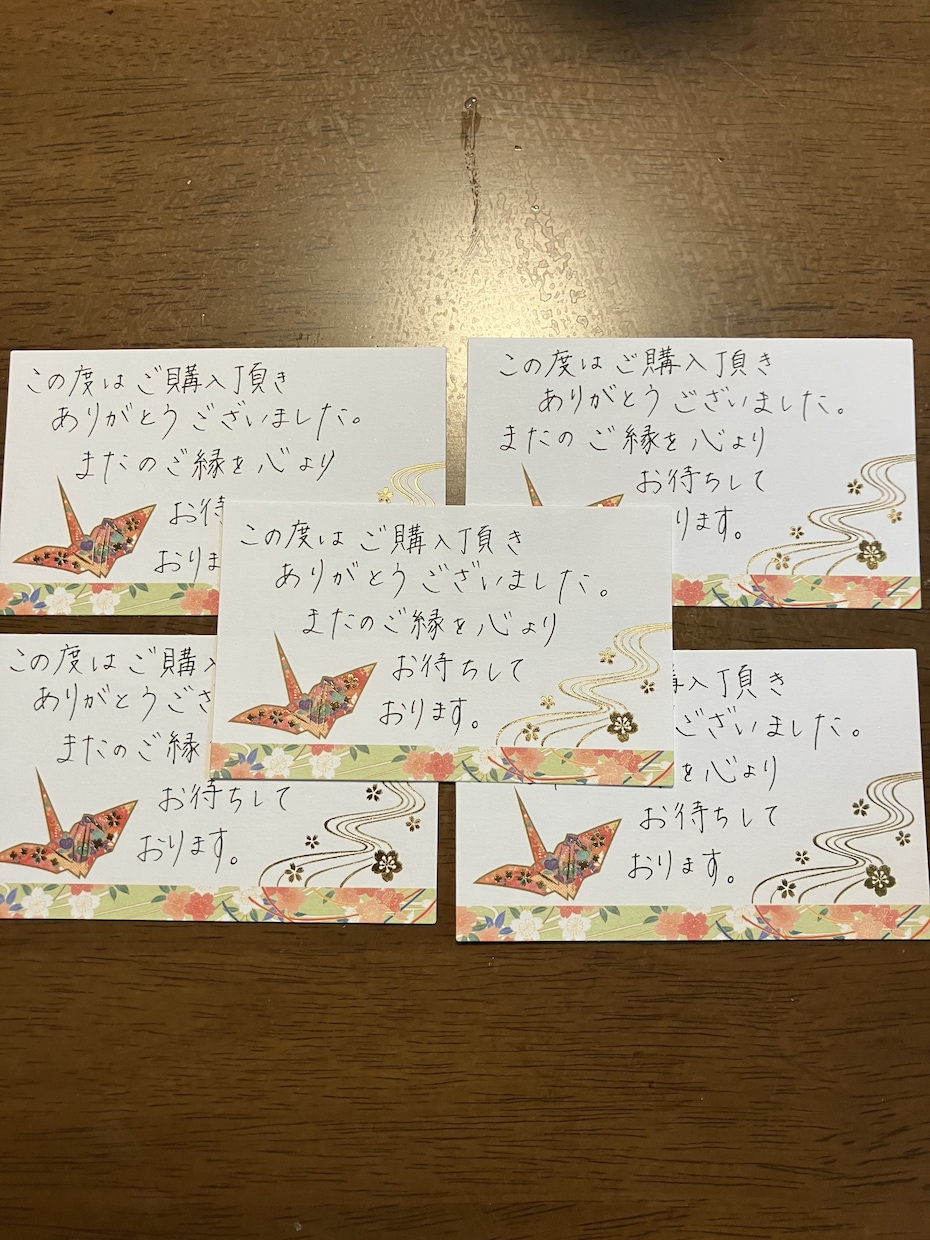 この度はご購入頂き
ありがとうございました。
またのご縁を心より
お待
おりま
この度はご購入頂き
ありがとうございました。
またのご縁を心より
お待ちして
ります。
この度はご購入頂き
ありがとうございました。
またのご縁を心より
お待ちして
おります。
この度はご購入
ありがとうござ
またのご縁
お待ちして
おります。
購入頂き
ございました。
を心より
お待ちして
おります。